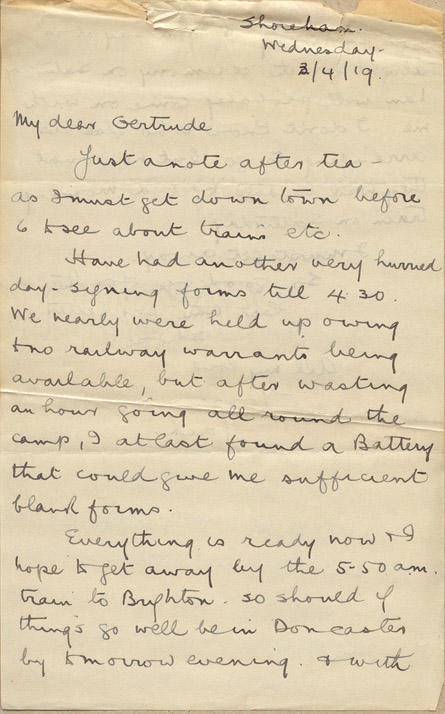 Shoreham.
Wednesday-
3/4/19.
My dear Gertrude
Just a note after tea -
as I must get down town before
6 to see about trains etc.
Have had another very hurried
day - signing forms till 4.30.
We nearly were held up owing
to no railway warrants being
available, but after wasting
an hour going all round the
camp, I at last found a Battery
that could give me sufficient
blank forms.
Everything is ready now & I
hope to get away by the 5-50 am.
train to Brighton. so should if
things go well be in Doncaster
by tomorrow evening. & with